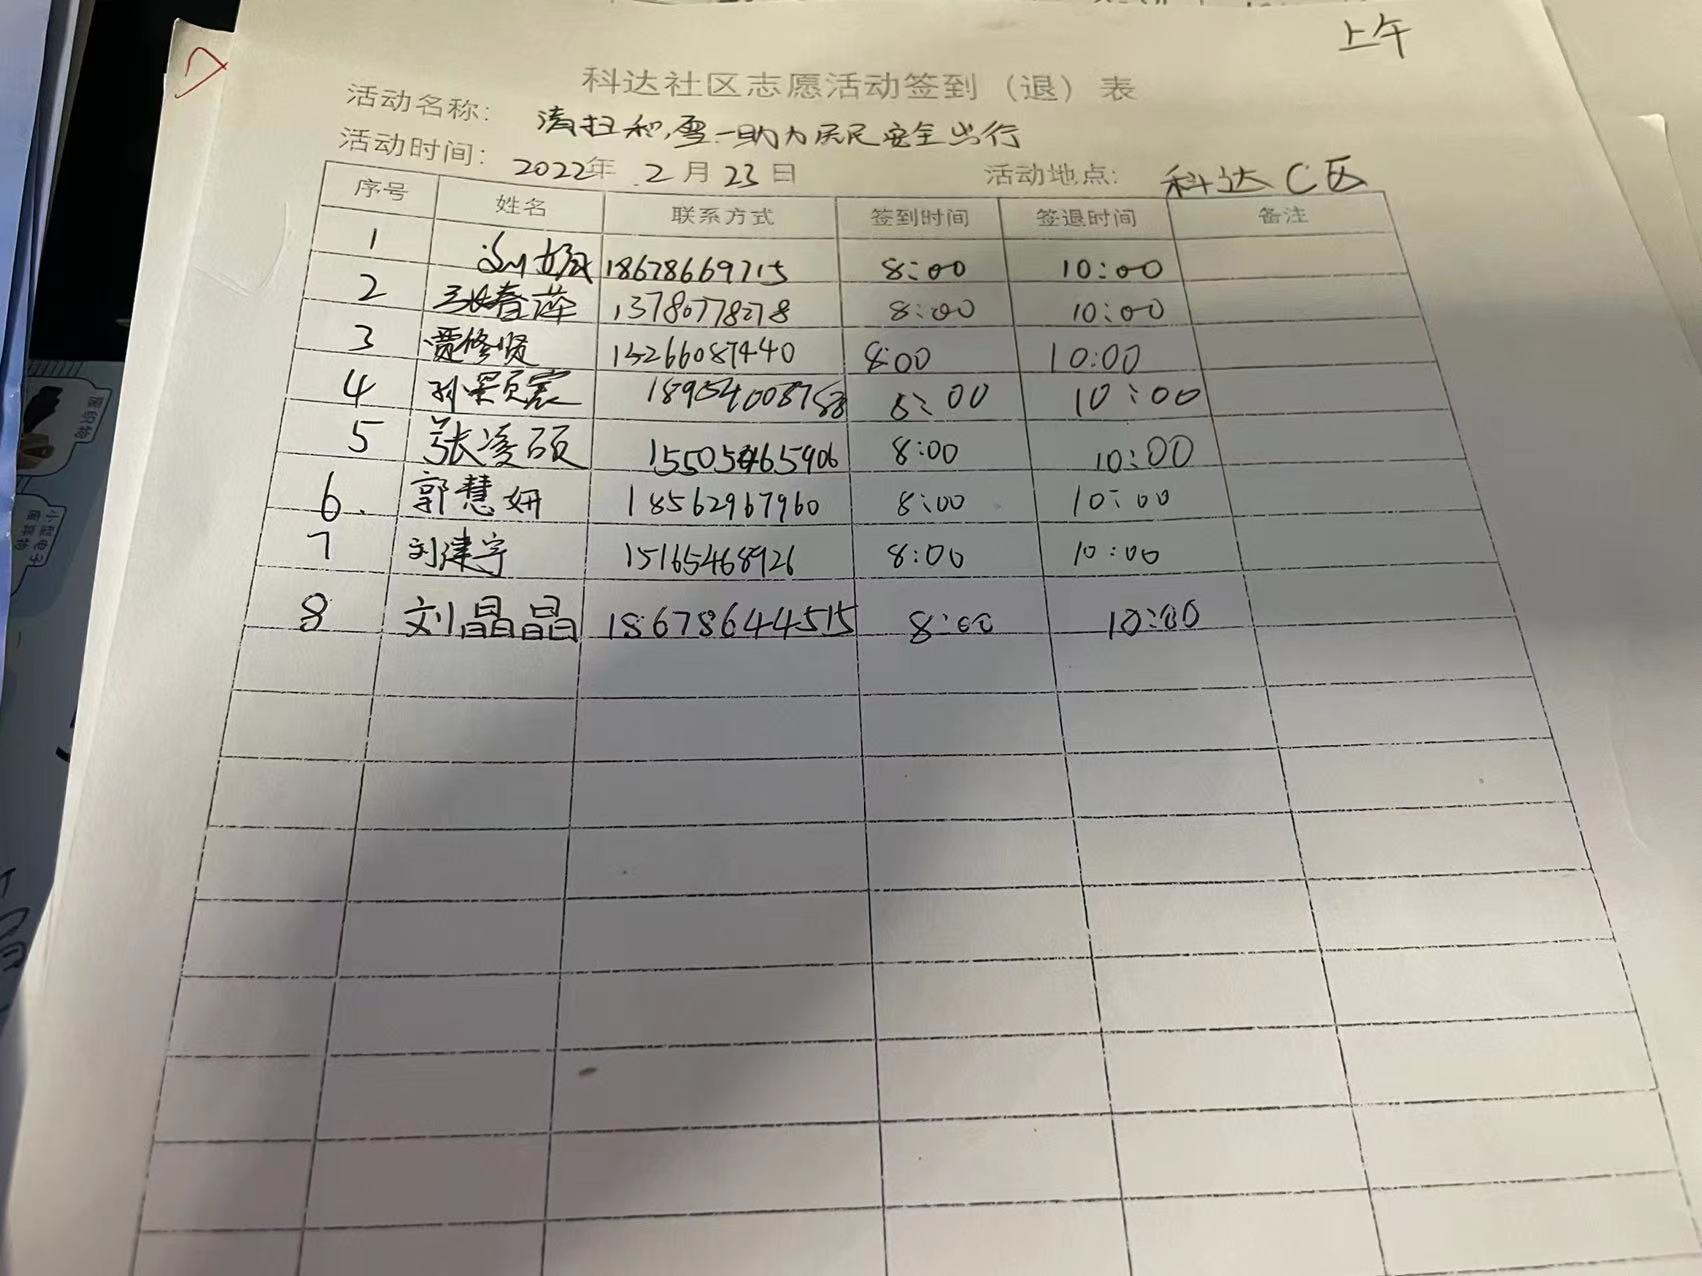 上午
科达社区志愿活动签到（退）表
活动名称： 清扫积雪 助力居民安全出行
活动时间： 2022年 2月23日 活动地点： 科达C区
序号 姓名 联系方式 签到时间 签退时间 备注
1 18678669715 8:00 10:00
2 春萍 13780778278 8:00 10:00
3 贾修贤 15266087440 8:00 10:00
4 孙 8:00 10:00
5 张凌硕 15505465906 8:00 10:00
6. 郭慧妍 18562967960 8:00 10:00
7 刘津宇 15165468926 8:00 10:00
8 刘晶晶 18678644515 8:00 10:00